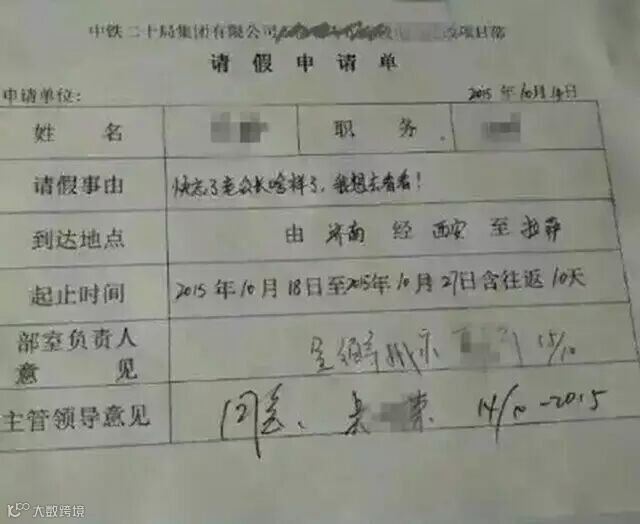 中铁二十局集团有限公司 项目部
请假申请单
申请单位: 2015年10月14日
姓 名 职 务
请假事由 快忘了老公长啥样了,我想去看看!
到达地点 由 济南 经 西安 至 拉萨
起止时间 2015年10月18日至2015年10月27日含往返10天
部室负责人
意 见 15/10
主管领导意见 同意、 14/10-2015
大数跨境